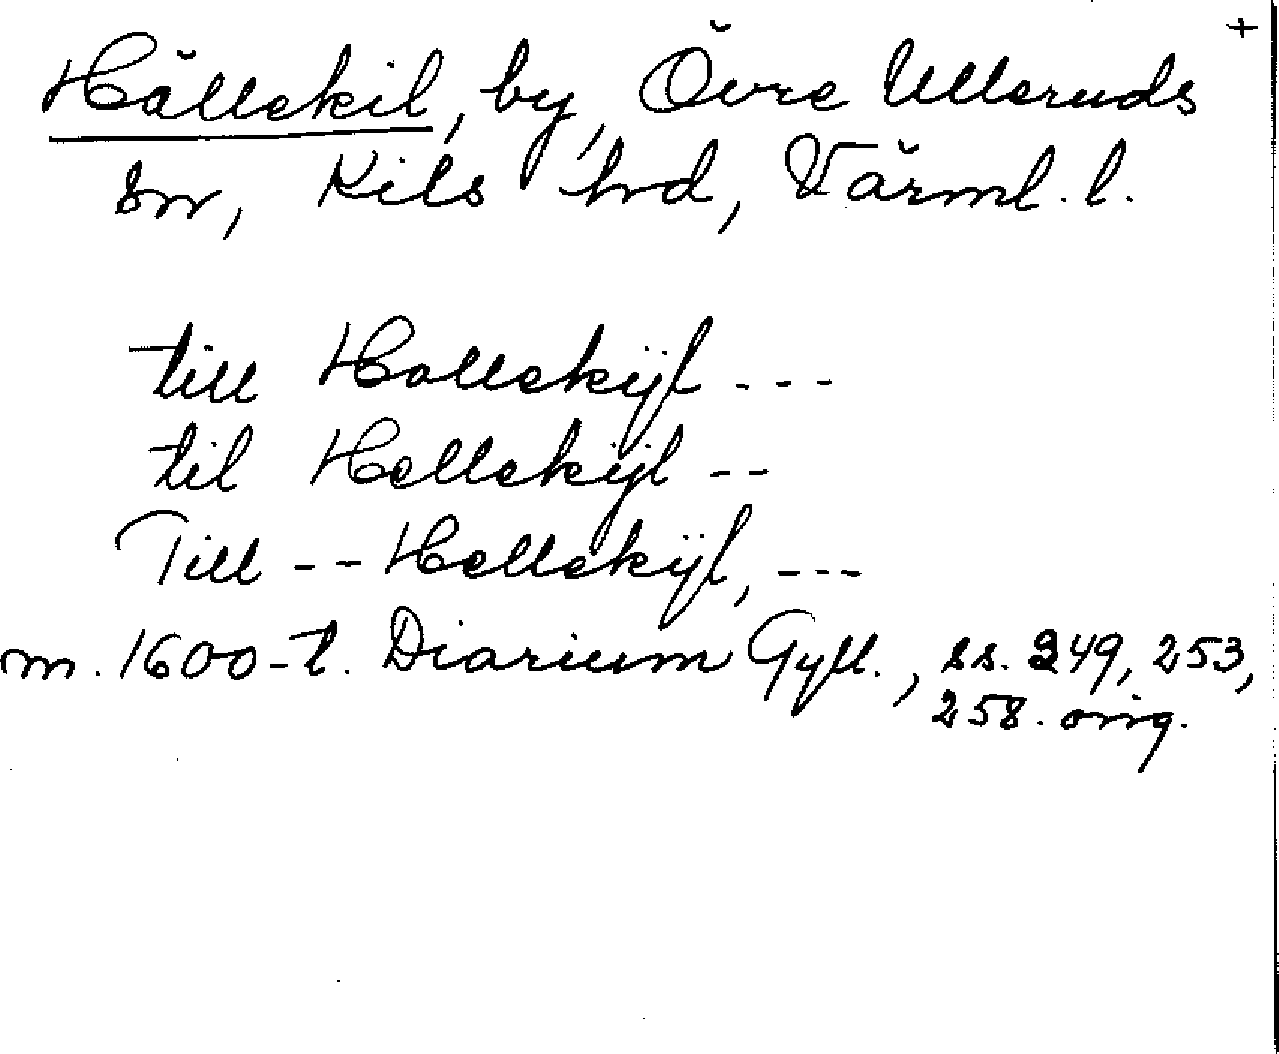 +
Hällekil, by, Övre Ulleruds
sn, Kils hd, Värml. l.
till Hallekÿl ---
til Hellekÿl --
Till -- Hellekÿl, ---
m. 1600-t. Diarium Gyll., ss. 249, 253,
258. orig.